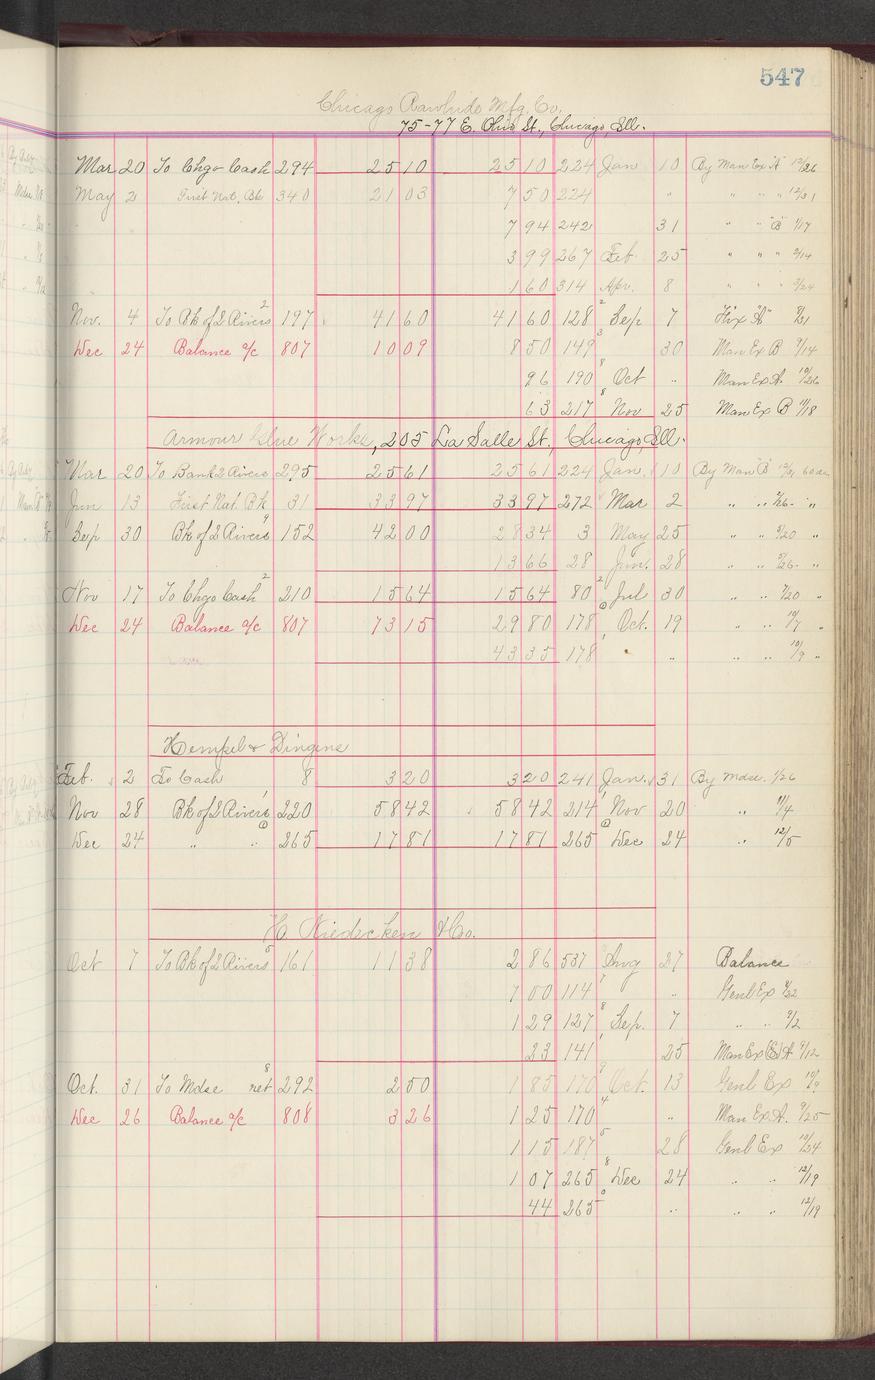 547
Chicago Rawhide Mfg. Co.
75-77 E. Ohio St., Chicago, Ill.
Mar 20 To Chgo Cash 294 25 10 25 10 224 Jan 10 By Man Ex "A" 12/26
May 2 First Nat. Bk 340 21 03 7 50 224 " " " " 12/31
7 94 242 31 " " "B" 1/17
3 99 267 Feb. 25 " " " 2/14
1 60 314 Apr. 8 " " " 3/24
Nov. 4 To Bk of 2 Rivers 2 197 41 60 41 60 128 2 Sep 7 "A" 8/31
Dec 24 Balance a/c 807 10 09 8 50 149 3 30 Man Ex B 9/14
96 190 8 Oct " Man Ex A. 10/26
63 217 8 Nov 25 Man Ex B 11/18
Armour Glue Works, 205 La Salle St., Chicago, Ill.
Mar 20 To Bank 2 Rivers 295 25 61 25 61 224 Jan. 10 By Man "B" 12/31 60 da
Jun 13 First Nat. Bk 31 33 97 33 97 272 Mar 2 " " 2/26 "
Sep 30 Bk of 2 Rivers 9 152 42 00 28 34 3 May 25 " " 5/20 "
13 66 28 Jun. 28 " " "
Nov 17 To Chgo Cash 2 210 15 64 15 64 80 2 Jul 30 " " 7/20 "
Dec 24 Balance a/c 807 73 15 29 80 178 Oct. 19 " " 10/7 "
43 35 178 " " " " 10/9 "
Hempel & Dingens
Feb. 2 To Cash 8 3 20 3 20 241 Jan. 31 By Mdse. 1/26
Nov 28 Bk of 2 Rivers 1 220 58 42 58 42 214 1 Nov 20 " 11/4
Dec 24 " " 265 17 81 17 81 265 Dec 24 " 12/5
H. Niedecken & Co.
Oct 7 To Bk of 2 Rivers 5 161 11 38 2 86 537 Aug 27 Balance
7 00 114 7 " Genl Ex 8/22
1 29 127 8 Sep. 7 " " 9/2
23 141 1 25 Man Ex A 9/12
Oct. 31 To Mdse ret 8 292 2 50 1 85 170 9 Oct. 13 Genl Ex 10/9
Dec 26 Balance a/c 808 3 26 1 25 170 4 " Man Ex A. 9/25
1 15 187 5 28 Genl Ex 10/24
1 07 265 8 Dec 24 " " 12/19
44 265 " " " 12/19